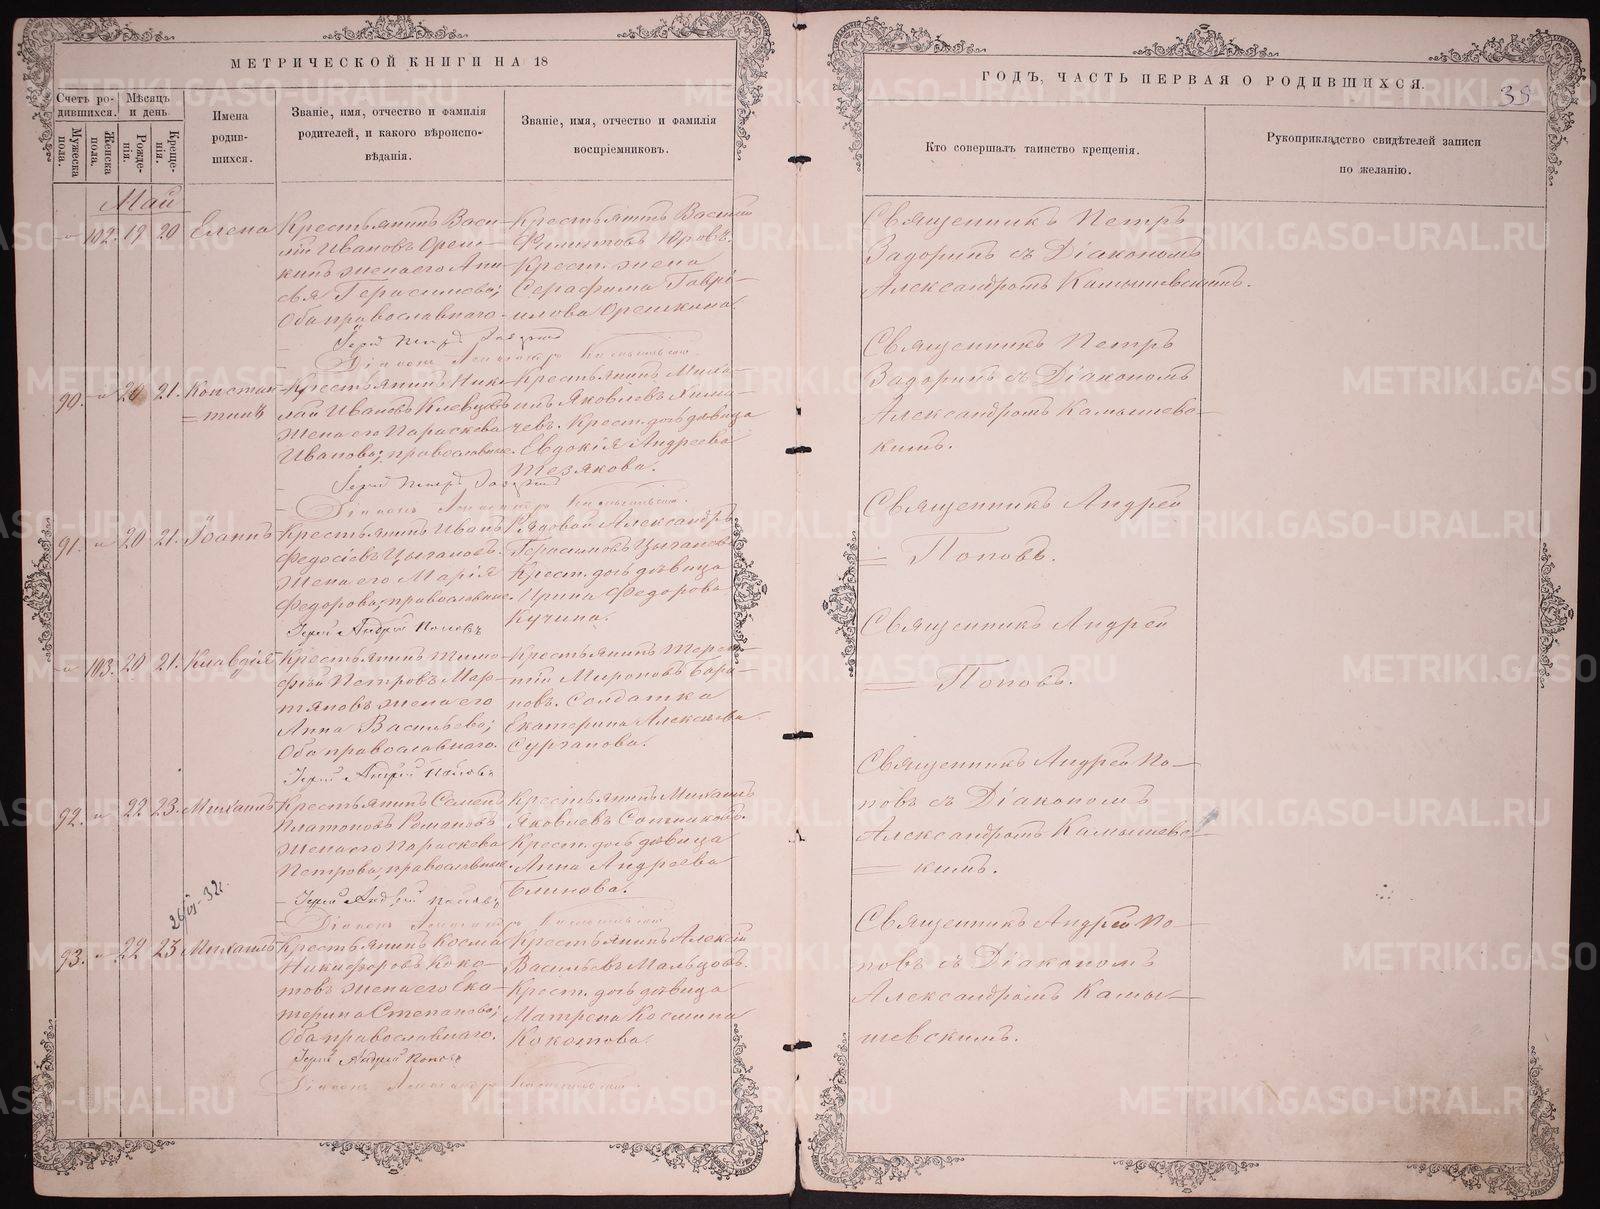 МЕТРИЧЕСКОЙ КНИГИ НА 18
Счетъ ро-
дившихся.
Мѣсяцъ
и день.
Мужеска
пола.
Женска
пола.
Рожде-
нія.
Креще-
нія.
Имена
родив-
шихся.
Званіе, имя, отчество и фамилія
родителей, и какого вѣроиспо-
вѣданія.
Званіе, имя, отчество и фамилія
воспріемниковъ.
Май
102. 19 20 Елена
Крестьянинъ Васи-
лій Ивановъ Ореш-
кинъ жена его Ани-
сья Герасимова;
Оба православнаго.
Крестьянинъ Василій
Филиповъ Юровъ.
Крест. жена
Серафима Гаврі-
илова Орешкина.
Іерей Петръ Задоринъ
Діаконъ Александръ Камышевскій
90. 20 21. Констан-
тинъ
Крестьянинъ Нико-
лай Ивановъ Клевцовъ
жена его Параскева
Иванова; православные.
Крестьянинъ Миха-
илъ Яковлевъ
Крест. дочь дѣвица
Евдокія Андреева
Тезякова.
Іерей Петръ Задоринъ
Діаконъ Александръ Камышевскій.
91. 20 21. Іоаннъ
Крестьянинъ Иванъ
Федосіевъ Цыгановъ.
Жена его Марія
Федорова; православные.
Рядовой Александръ
Герасимовъ Цыгановъ
Крест. дочь дѣвица
Ирина Федорова
Кучина.
Іерей Андрей Поповъ
103. 20 21. Клавдія
Крестьянинъ Тимо-
фей Петровъ Мар-
тяновъ жена его
Анна Васильева;
Оба православнаго.
Крестьянинъ Терен-
тій Мироновъ Бара-
новъ. Солдатка
Екатерина Алексѣева
Сурганова.
Іерей Андрей Поповъ
92. 22 23. Михаилъ
Крестьянинъ Семенъ
Платоновъ Романовъ
жена его Параскева
Петрова; православные
Крестьянинъ Михаилъ
Яковлевъ
Крест. дочь дѣвица
Анна Андреева
Блинова.
Іерей Андрей Поповъ
Діаконъ Александръ Камышевскій
93. 22 23 Михаилъ
Крестьянинъ Косма
Никифоровъ Коко-
товъ жена его Ека-
терина Степанова;
Оба православнаго.
Крестьянинъ Алексій
Васильевъ Мальцовъ.
Крест. дочь дѣвица
Матрена Космина
Кокотова.
Іерей Андрей Поповъ
Діаконъ Александръ Камышевскій.
ГОДЪ, ЧАСТЬ ПЕРВАЯ О РОДИВШИХСЯ.
Кто совершалъ таинство крещенія.
Рукоприкладство свидѣтелей записи
по желанію.
Священникъ Петръ
Задоринъ съ Діакономъ
Александромъ Камышевскимъ.
Священникъ Петръ
Задоринъ съ Діакономъ
Александромъ Камышевс-
кимъ.
Священникъ Андрей
Поповъ.
Священникъ Андрей
Поповъ.
Священникъ Андрей По-
повъ съ Діакономъ
Александромъ Камышевс-
кимъ.
Священникъ Андрей По-
повъ съ Діакономъ
Александромъ Камы-
шевскимъ.
METRIKI.GASO-URAL.RU